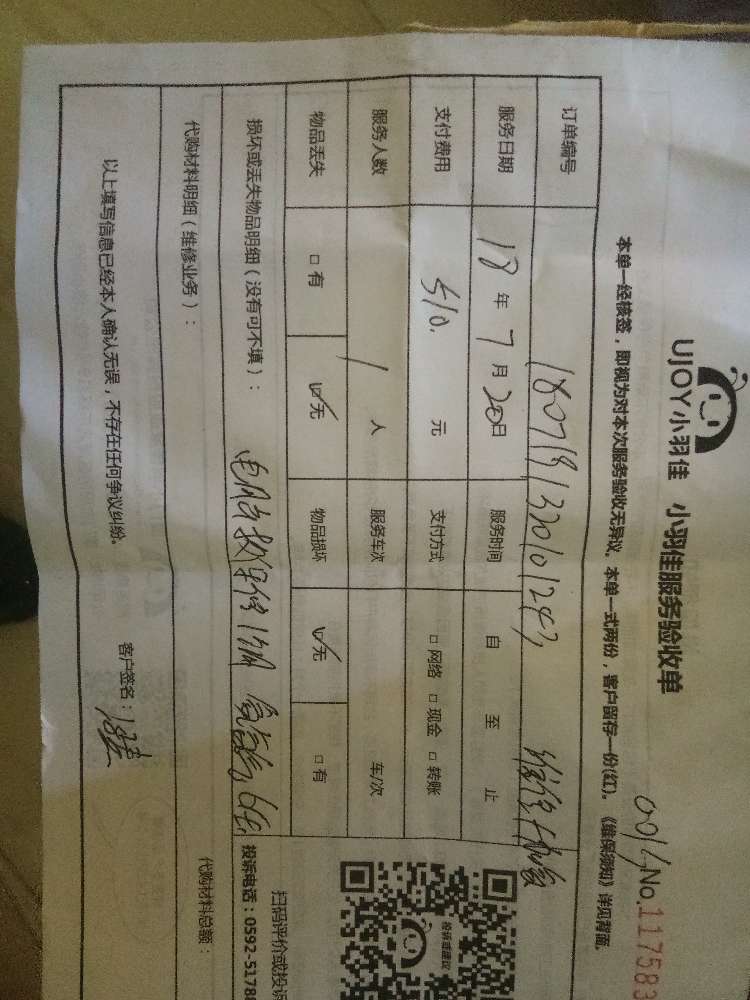 UJOY小羽佳 小羽佳服务验收单
001 No.117583
本单一经核签，即视为对本次服务验收无异议。本单一式两份，客户留存一份(红)。《维保须知》详见背面。
订单编号
服务日期 18 年 7 月 20 日 服务时间 自 至 止
支付费用 510. 元 支付方式 □网络 □现金 □转账
服务人数 1 人 服务车次 车/次
物品丢失 □有 ☑无 物品损坏 ☑无 □有
损坏或丢失物品明细（没有可不填）：
代购材料明细（维修业务）： 代购材料总额：
以上填写信息已经本人确认无误，不存在任何争议纠纷。
客户签名：
投诉或建议
扫码评价或投诉
投诉电话：0592-5178